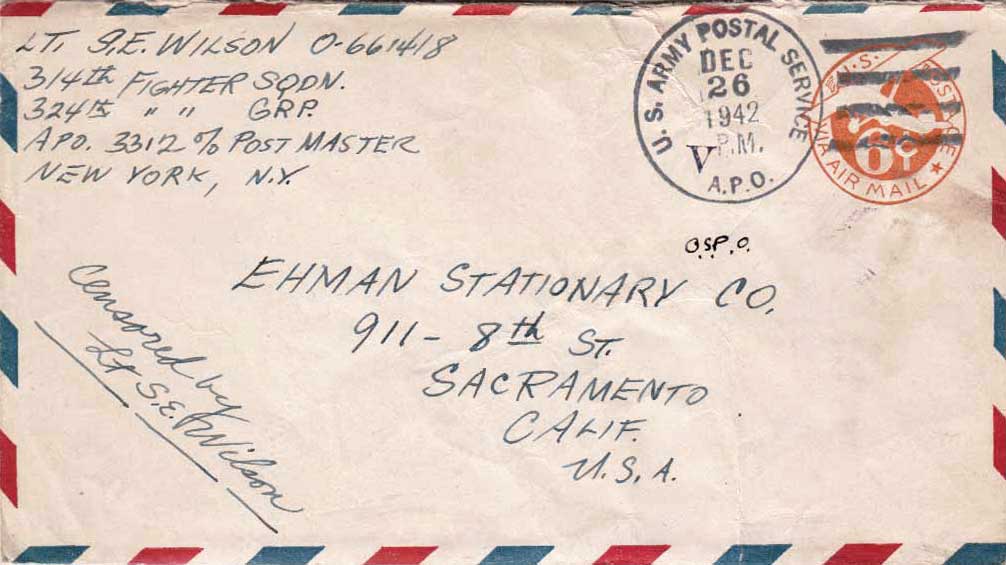 LT. S.E. WILSON O-661418
314th FIGHTER SQDN.
324th " " GRP.
APO. 3312 % POST MASTER
NEW YORK, N.Y.
U.S. ARMY POSTAL SERVICE
DEC
26
1942
P.M.
V
A.P.O.
U.S. POSTAGE
6¢
VIA AIR MAIL
O.S.P.O.
EHMAN STATIONARY CO.
911- 8th ST.
SACRAMENTO
CALIF.
U.S.A.
Censored by
Lt S.E. Wilson